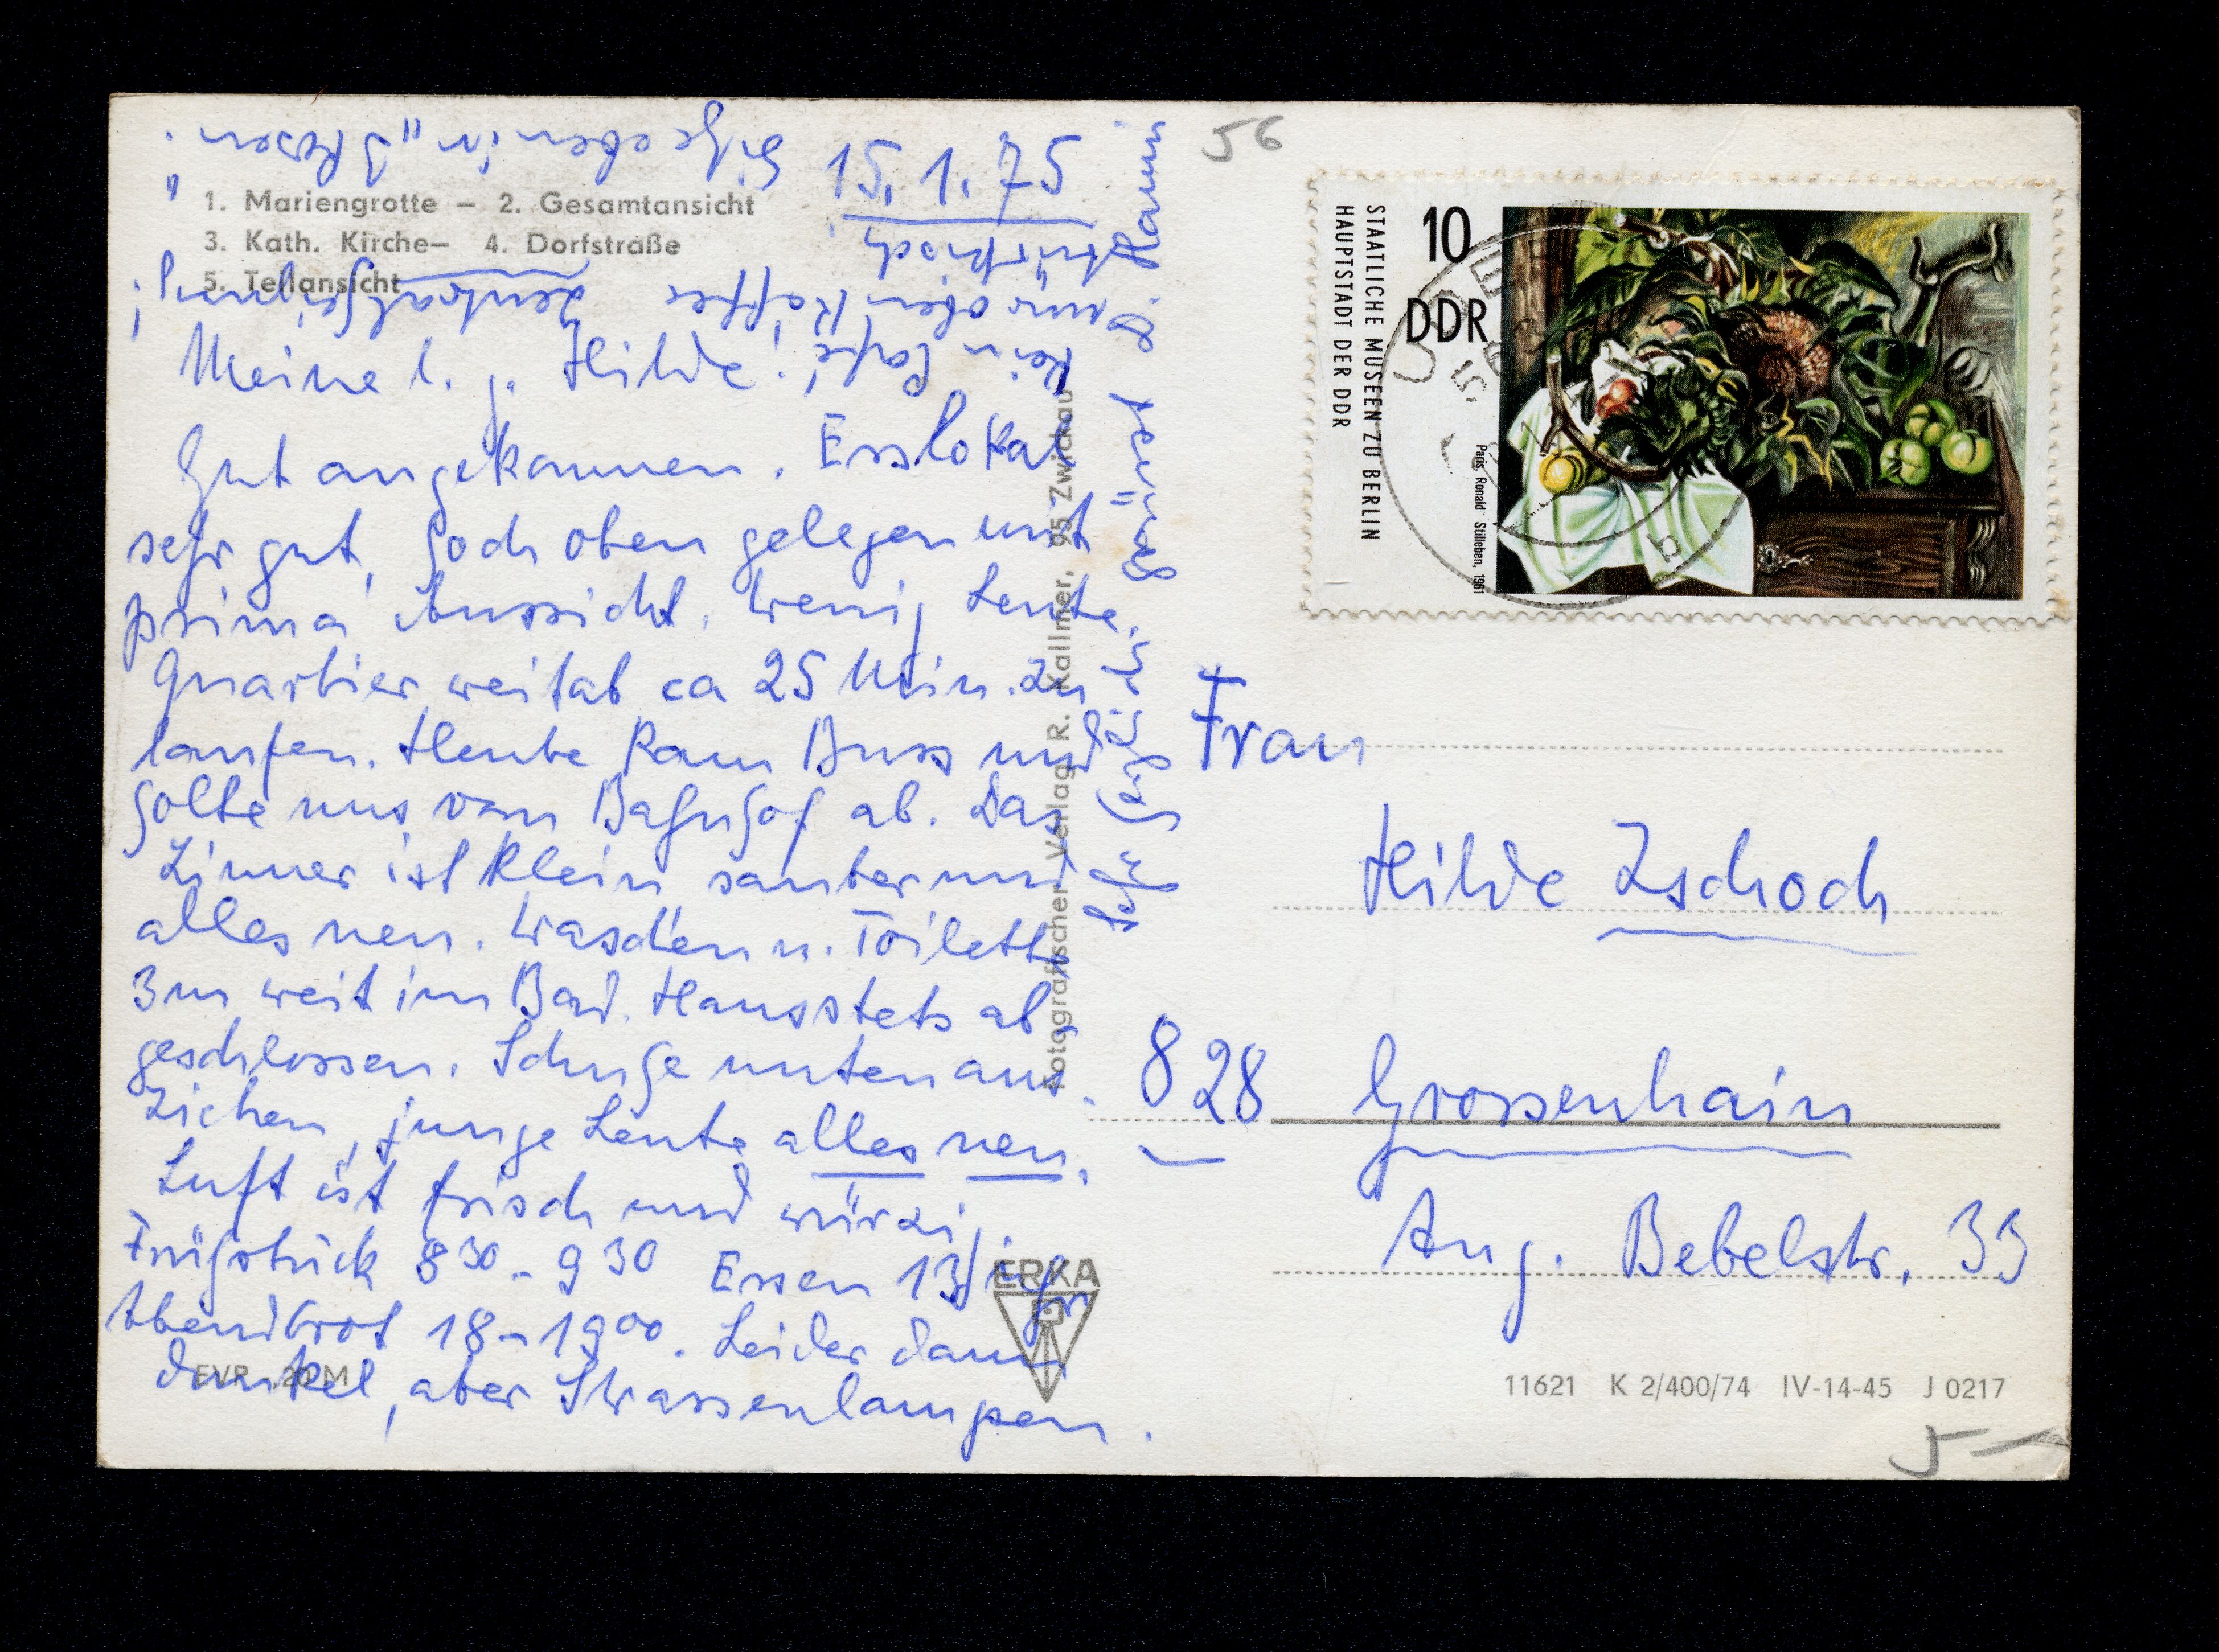 56
15.1.75
1. Mariengrotte – 2. Gesamtansicht
3. Kath. Kirche– 4. Dorfstraße
5. Teilansicht
Meine l. g. Hilde!
Gut angekommen. Esslokal
sehr gut, hoch oben gelegen mit
prima Aussicht. Wenig Leute.
Quartier weitab ca 25 Min. zu
laufen. Heute kam Buss und
holte uns vom Bahnhof ab. Das
Zimmer ist klein sauber und
alles neu. Waschen u. Toilette
3 m weit im Bad. Haus stets ab-
geschlossen. Schuhe unten aus-
ziehen, junge Leute alles neu.
Luft ist frisch und würzig.
Frühstück 8 30 - 9 30 Essen 13 Uhr
Abendbrot 18 - 19 00. Leider dann
dunkel, aber Strassenlampen.
Sehr herzlich
grüßt
Hanni
kein Café
nur oben Kaffee
türkisch
Zentralheizung
Sitze eben in
Fotografischer Verlag R. Kallmer, 95 Zwickau
EVP -,20 M
ERKA
STAATLICHE MUSEEN ZU BERLIN
HAUPTSTADT DER DDR
10
DDR
Paris, Ronald Stilleben, 1961
Frau
Hilde Zschoch
828 Grossenhain
Aug. Bebelstr. 33
11621 K 2/400/74 IV-14-45 J 0217
5-